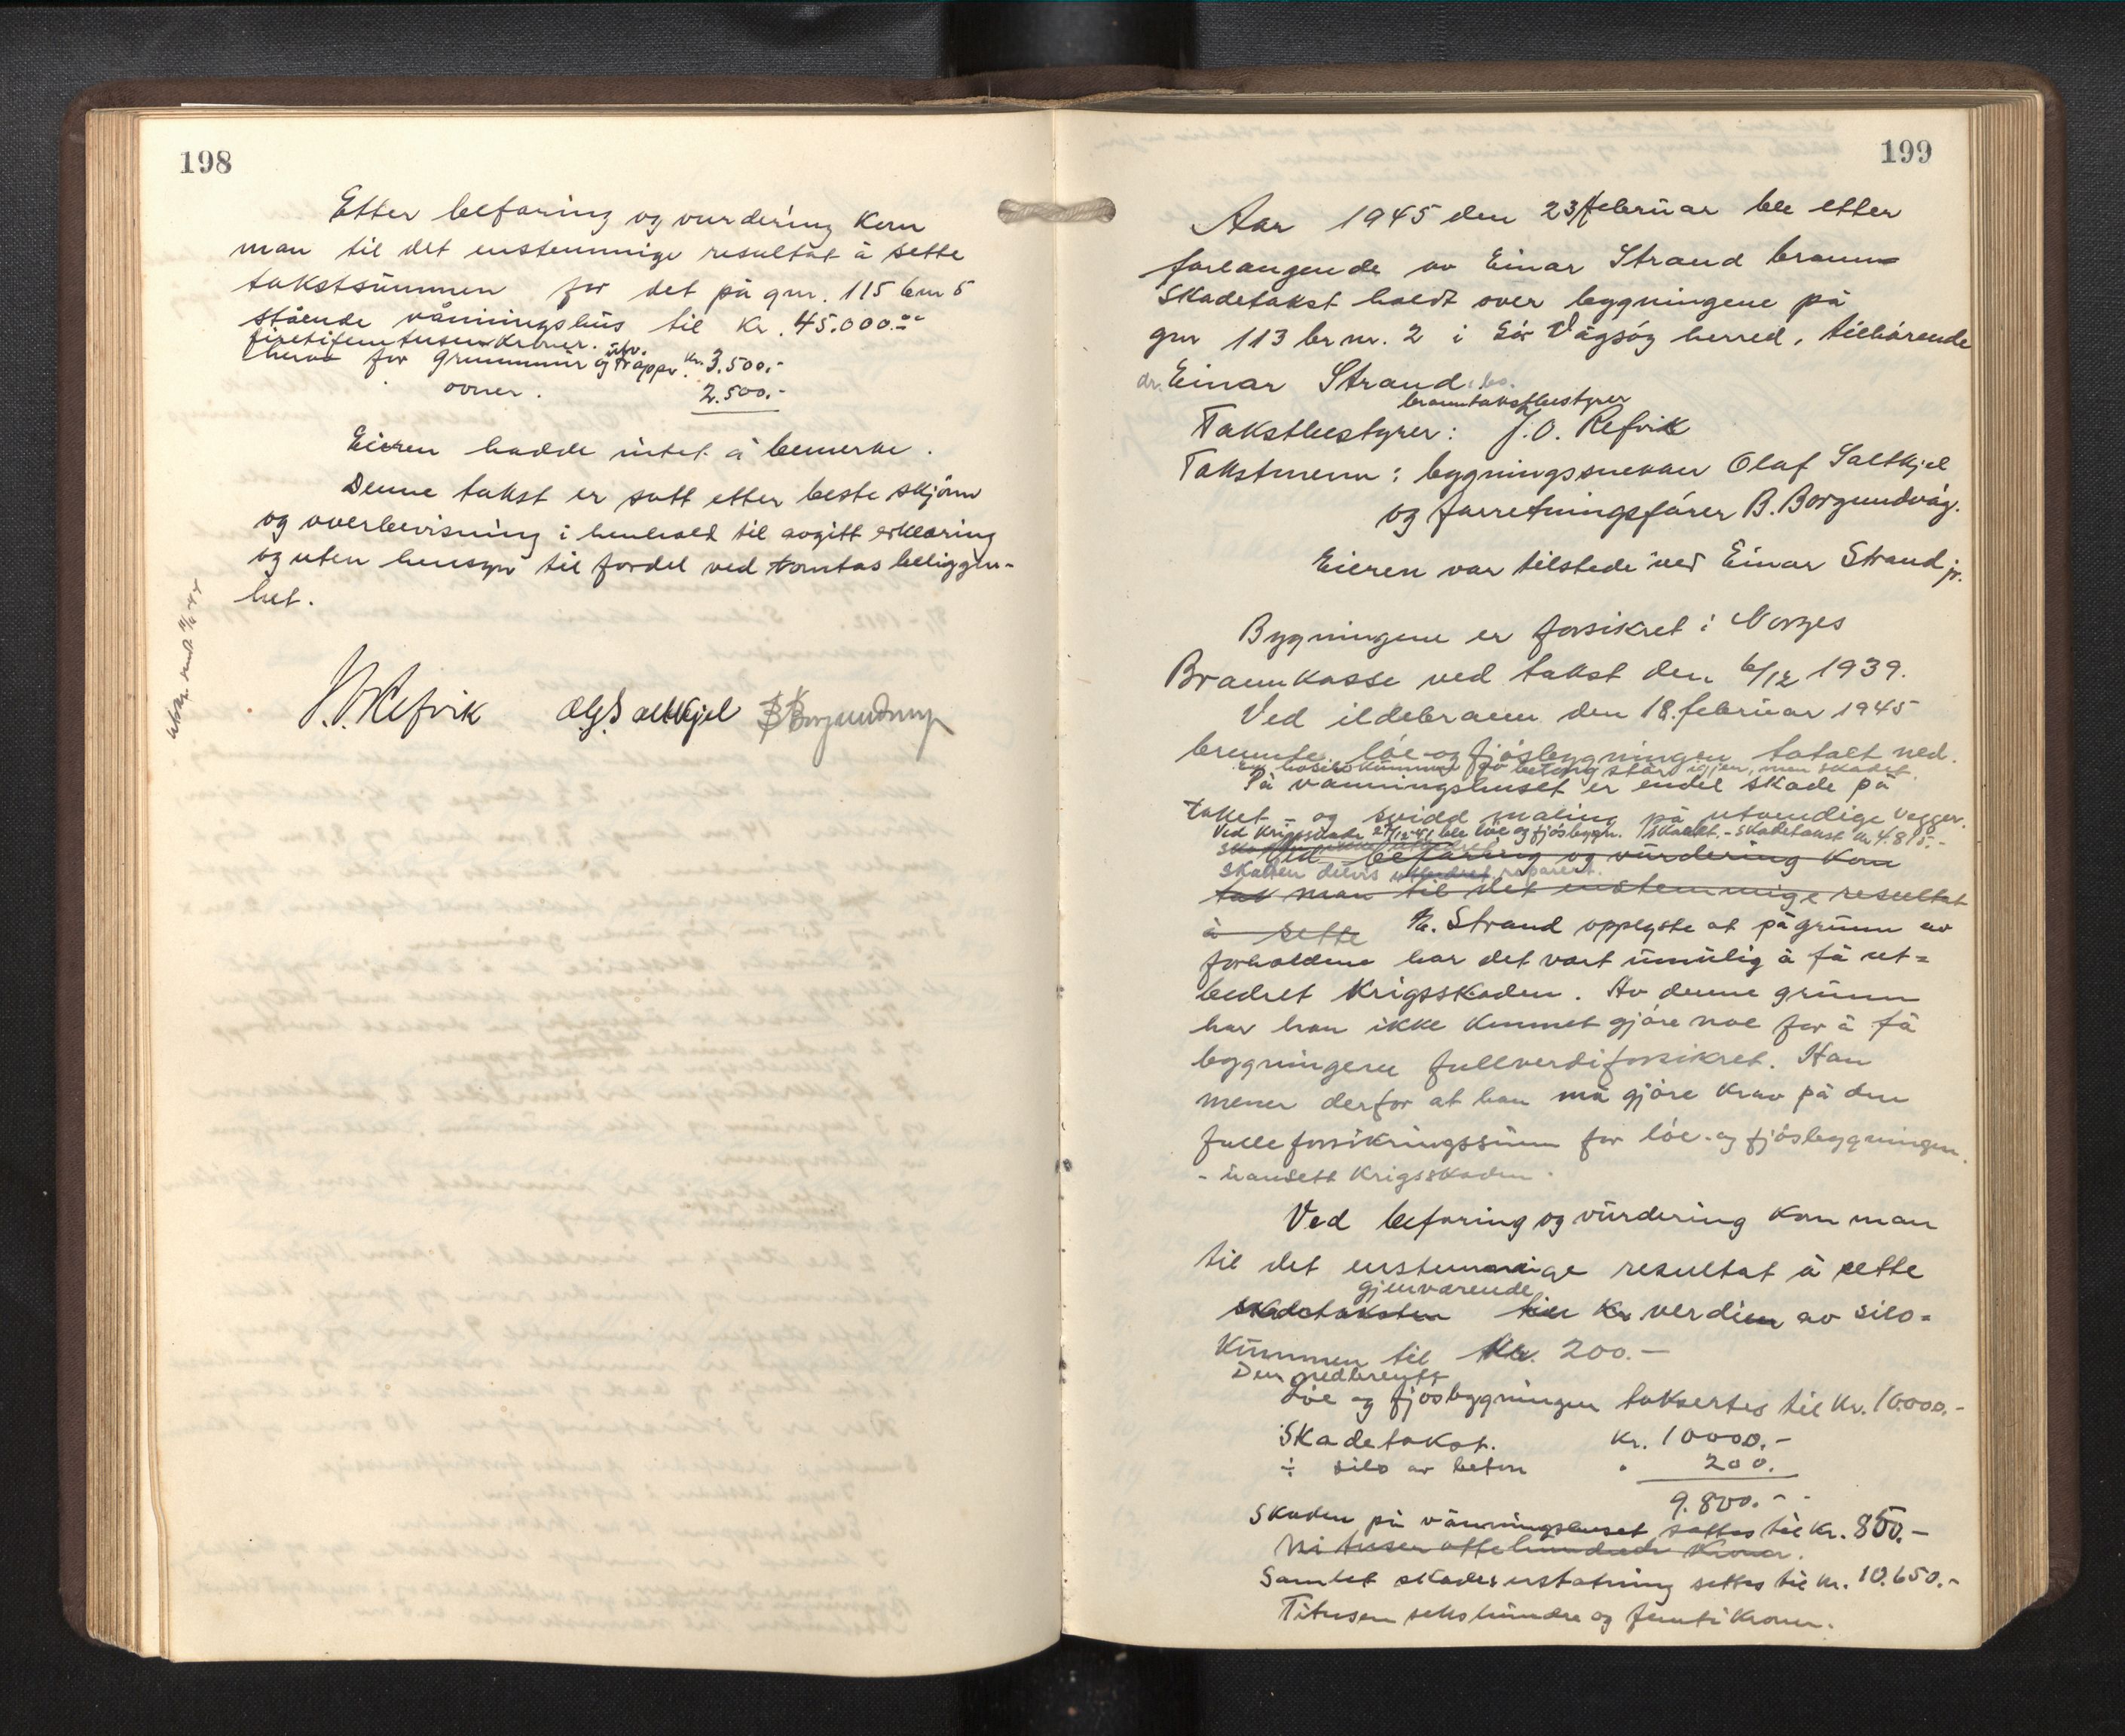 198
Etter befaring og vurdering kom
man til det enstemmige resultat å sette
takstsummen for det på gnr. 115 bnr 5
stående våningshus til kr. 45.000.00
firetifemtusenkroner.
herav for grunnmur og utv. trapper. kr. 3.500.-
ovner. 2.500.-
Eieren hadde intet å bemerke.
Denne takst er satt etter beste skjønn
og overbevisning i henhold til avgitt erklæring
og uten hensyn til fordel ved tomtas beliggen-
het.
J.O. Refvik Olaf Saltkjel B. Borgundvåg
199
Aar 1945 den 23/februar ble etter
forlangende av Einar Strand brann
skadetakst holdt over bygningene på
gnr 113 br nr. 2 i Sør Vågsøy herred, tilhørende
dr. Einar Strand. bo.
branntakstbestyrer
Takstbestyrer: J.O. Refvik
Takstmenn: bygningssnekker Olaf Saltkjel
og forretningsfører B. Borgundvåg.
Eieren var tilstede ved Einar Strand jr.
Bygningene er forsikret i Norges
Brannkasse ved takst den 6/12 1939.
Ved ildebrann den 18. februar 1945
brennte løe- og fjøsbygningen totalt ned.
av betong står igjen, men skadet.
På våningshuset er endel skade på
taket - og svidd maling på utvendige vegger.
Ved krigsskade 27/12-41 ble løe og fjøsbygn. skadet. - skadetakst kr 4.815.-
Ved befaring og vurdering kom
Skaden delvis utbedret reparert.
tak man til det enstemmige resultat
å sette Hr. Strand opplyste at på grunn av
forholdene har det vært umulig å få ut=
bedret krigsskaden. Av denne grunn
har han ikke kunnet gjøre noe for å få
bygningene fullverdiforsikret. Han
mener derfor at han må gjøre krav på den
fulle forsikringssum for løe- og fjøsbygningen.
- uansett krigsskaden.
Ved befaring og vurdering kom man
til det enstemmige resultat å sette
gjenværende
skadetaksten til kr verdien av silo=
kummen til kr. 200.-
Den nedbrente
Løe og fjøsbygningen takseres til kr. 10000.-
Skadetakst. kr. 10000.-
÷ silo av betong " 200.
9.800.-
Skaden på våningshuset settes til kr. 850.-
Ni tusen åttehundrede kroner.
Samlet skadeserstatning settes til kr. 10.650.-
Titusen sekshundre og femti kroner.